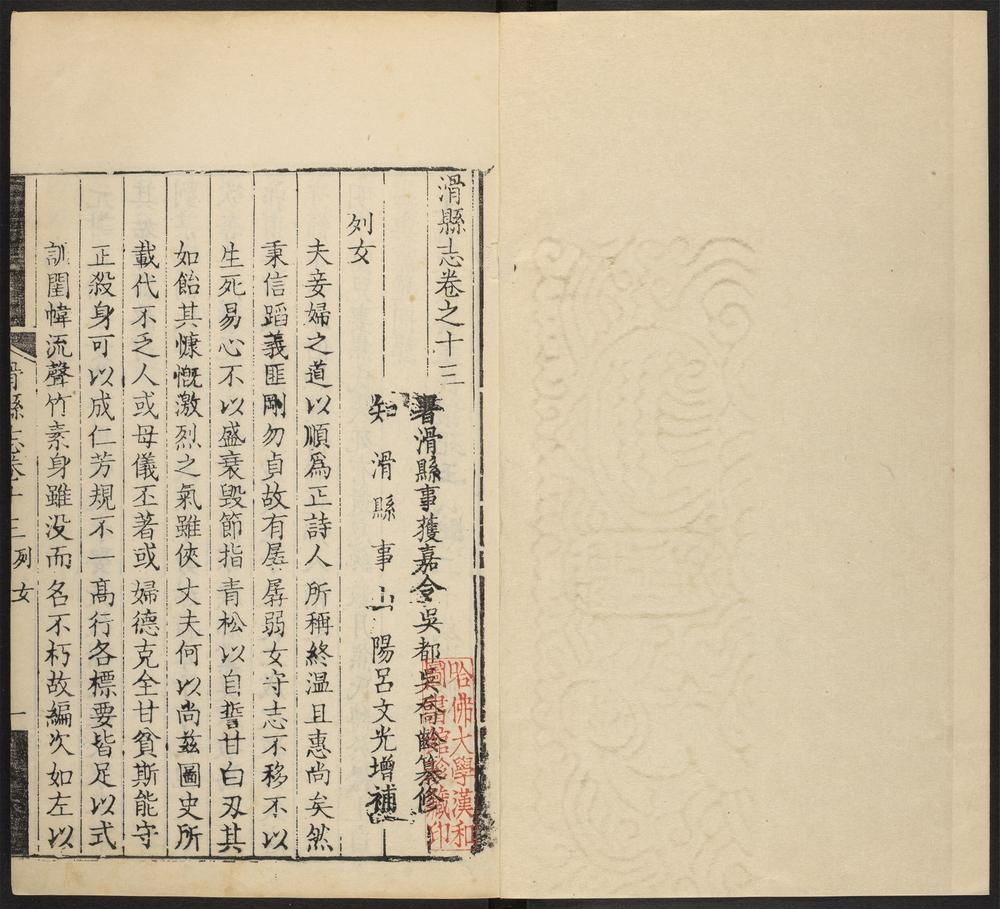 滑縣志卷之十三
署滑縣事獲嘉令吳都吳喬齡纂修
知滑縣事山陽呂文光增補
列女
夫妾婦之道以順爲正詩人所稱終溫且惠尚矣然
秉信蹈義匪剛勿貞故有孱弱女守志不移不以
生死易心不以盛衰毀節指青松以自誓甘白刃其
如飴其慷慨激烈之氣雖俠丈夫何以尚兹圖史所
載代不乏人或母儀丕著或婦德克全甘貧斯能守
正殺身可以成仁芳規不一高行各標要皆足以式
訓閨幃流聲竹素身雖没而名不朽故編次如左以
滑縣志卷十三 列女 一
哈佛大學漢和
圖書館珍藏印